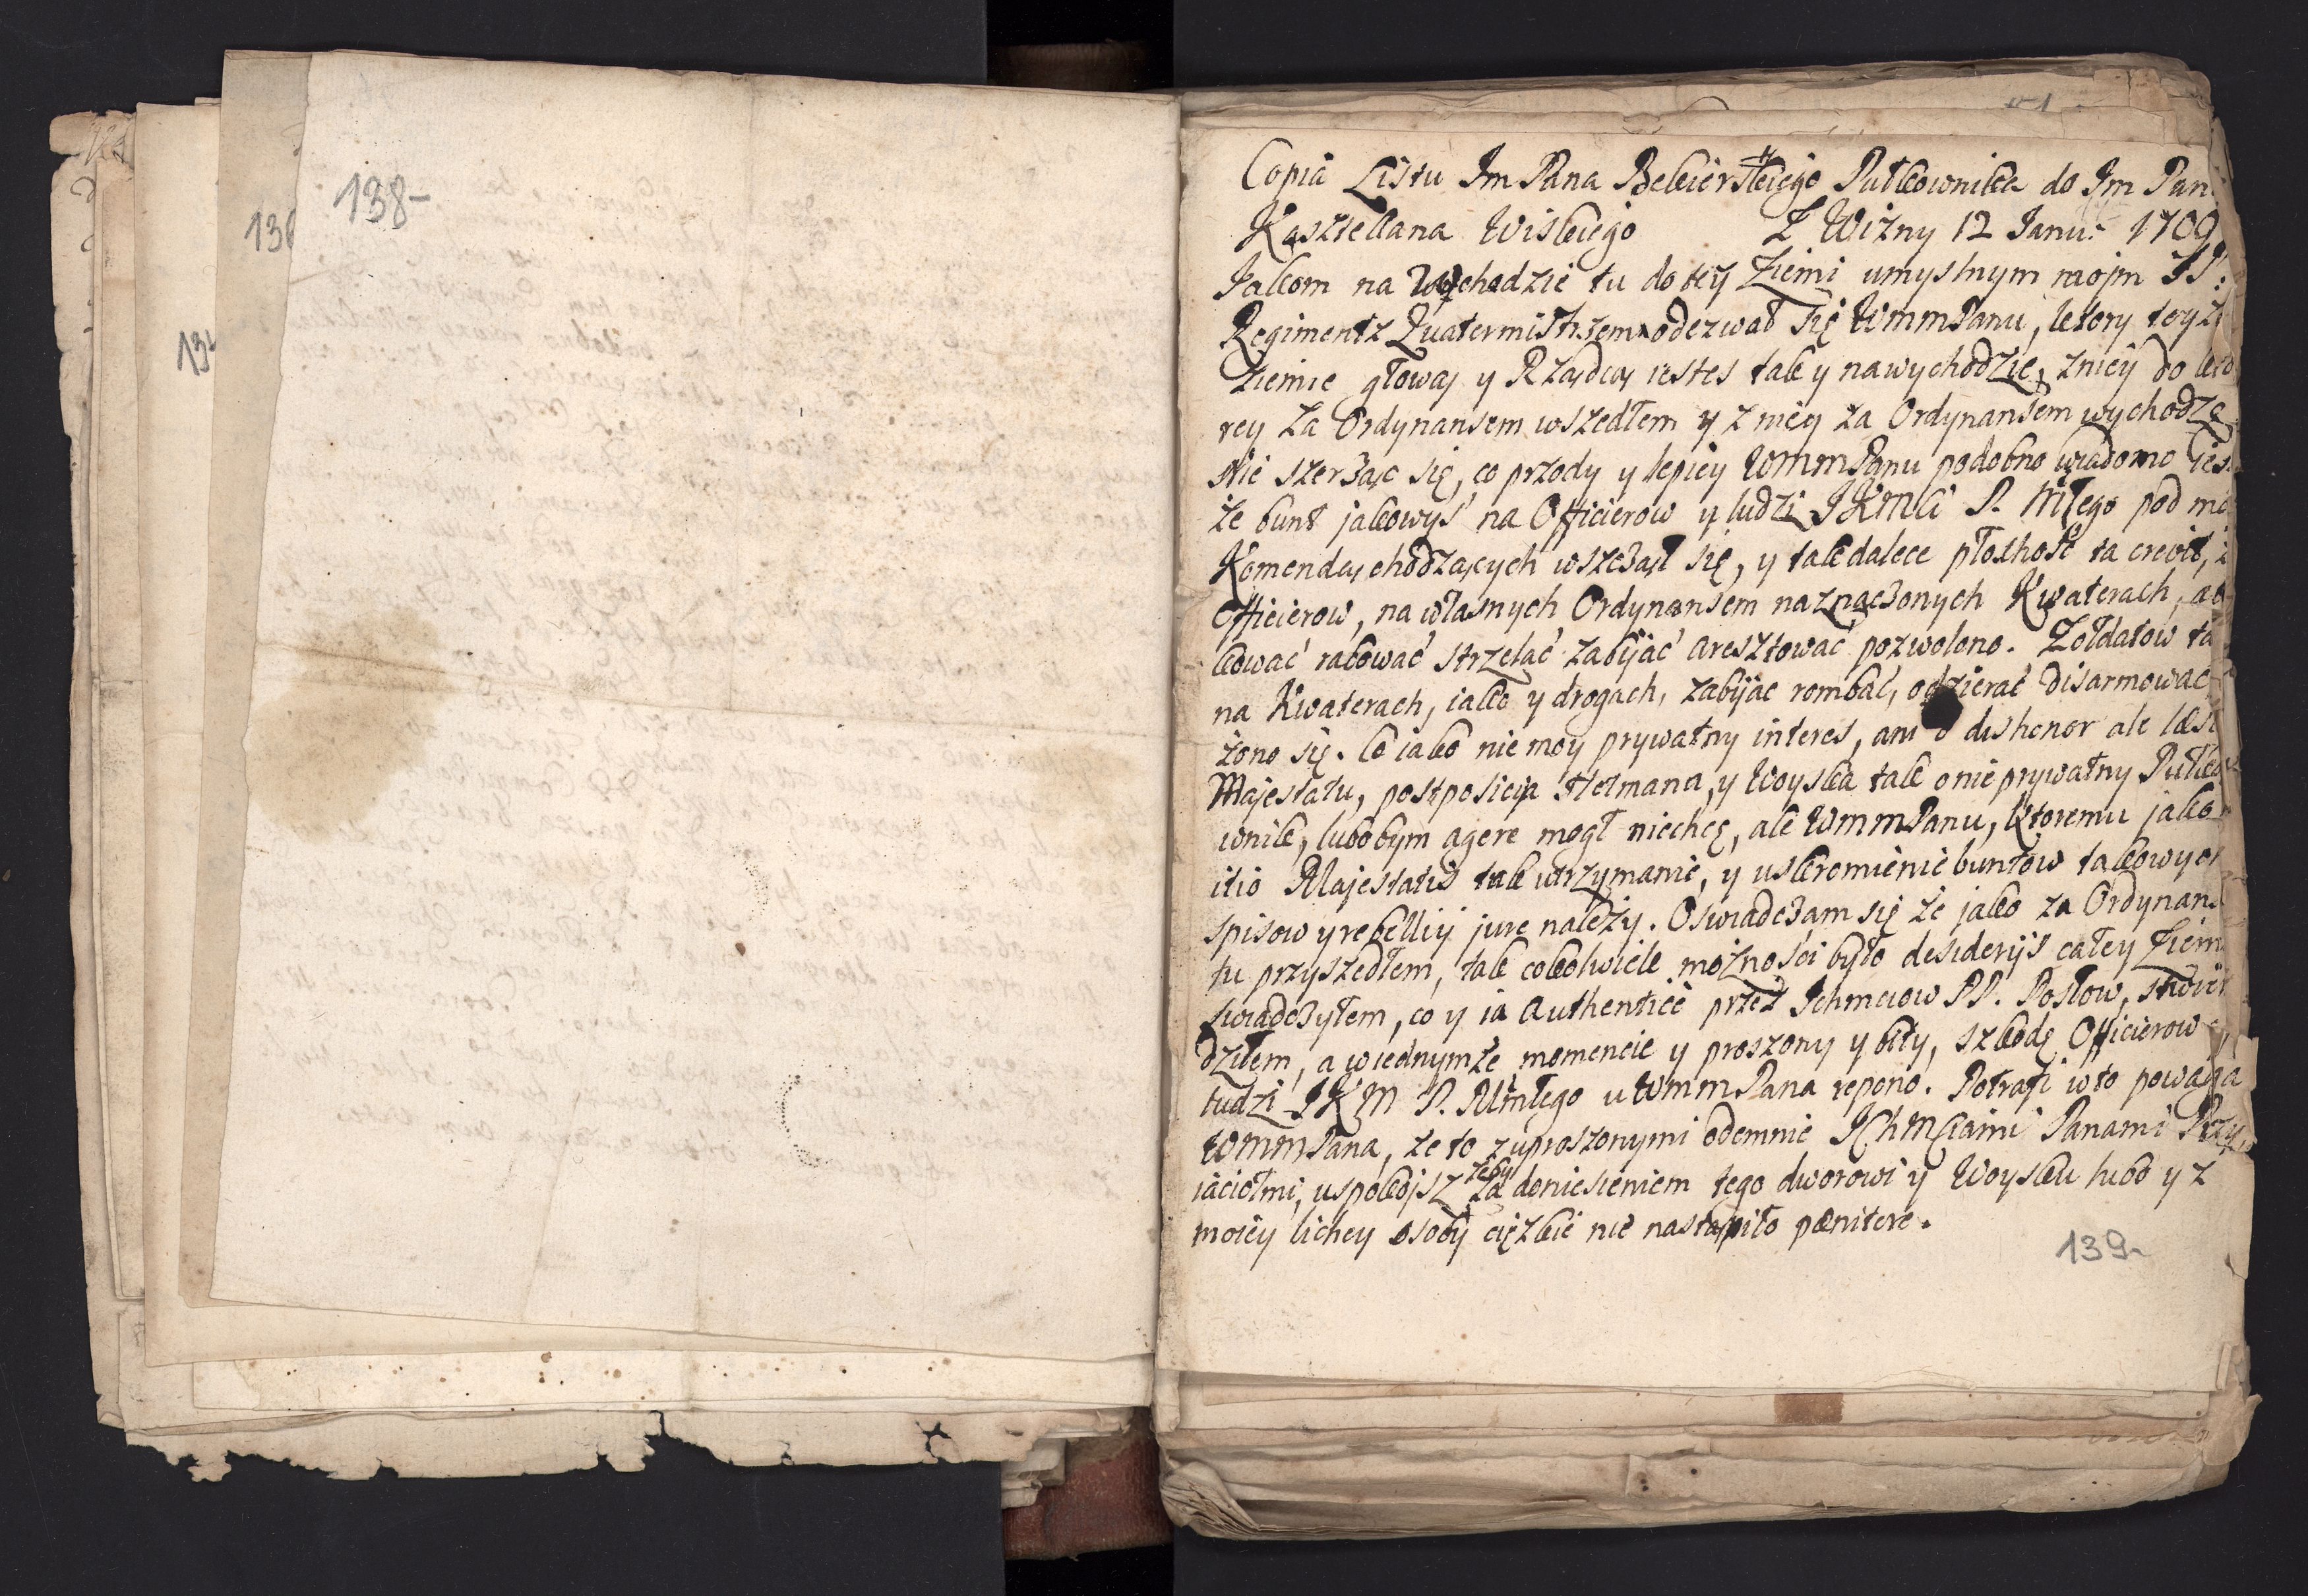 138-
136
134
Copia Listu Jm Pana Bekierskiego Pułkownika do Jm Pan
Kasztellana Wiskiego Z Wizny 12 Janu: 1709
Jakom na Wchodzie tu do tey Ziemi umyslnym mojm JP:
Regimentz Quatermistrzem odezwał się WmmPanu, ktory teyże
ziemie głową y Rządcą iestes tak y na wychodzie, z niey do kto
rey za Ordynansem wszedłem y z niey za Ordynansem wychodzę
nie szerząc się, co przody y lepiey WmmPanu podobno wiadomo ies
że bunt jakowyś na Officierow y ludzi JKMCi P. Młego pod mo
Komendą chodzących wszczął się, y tak dalece płoskość ta crevit,
Officierow, na własnych Ordynansem naznaczonych Kwaterach, at
kować rabować strzelać zabijać aresztować pozwolono. Zołdatow ta
na Kwaterach, iako y drogach, zabijac rombać, odzierać disarmowac
żono się. Co iako nie moy prywatny interes, ani dishonor ale læsi
Majestatu, postposicia Hetmana, y Woyska tak o nie prywatny Pułko
wnik, lubobym agere mogł niechcę, ale WmmPanu, Ktoremu jako
itio Majestatis tak utrzymanie, y uskromienie buntow takowych
spisow y rebelliy jure należy. Oswiadczam się że jako za Ordynans
tu przyszedłem, tak cokolwiek możności było desiderijs całey Ziemi
swiadczyłem, co y ia Authentice przez Ichmciow PP. Posłow, stwier
dziłem, a w iednymże momencie y proszony y bity, szkodę Officierow
ludzi JKM P. Mmłego u WmmPana repono. Potrafi w to powaga
WmmPana, że to z uproszonymi odemnie JchMCiami Panami Przy
iaciołmi, uspokoisz żeby za doniesieniem tego dworowi y Woysku lubo y z
moiey lichey osoby cięzkie nie nastąpiło pœnitere.
139